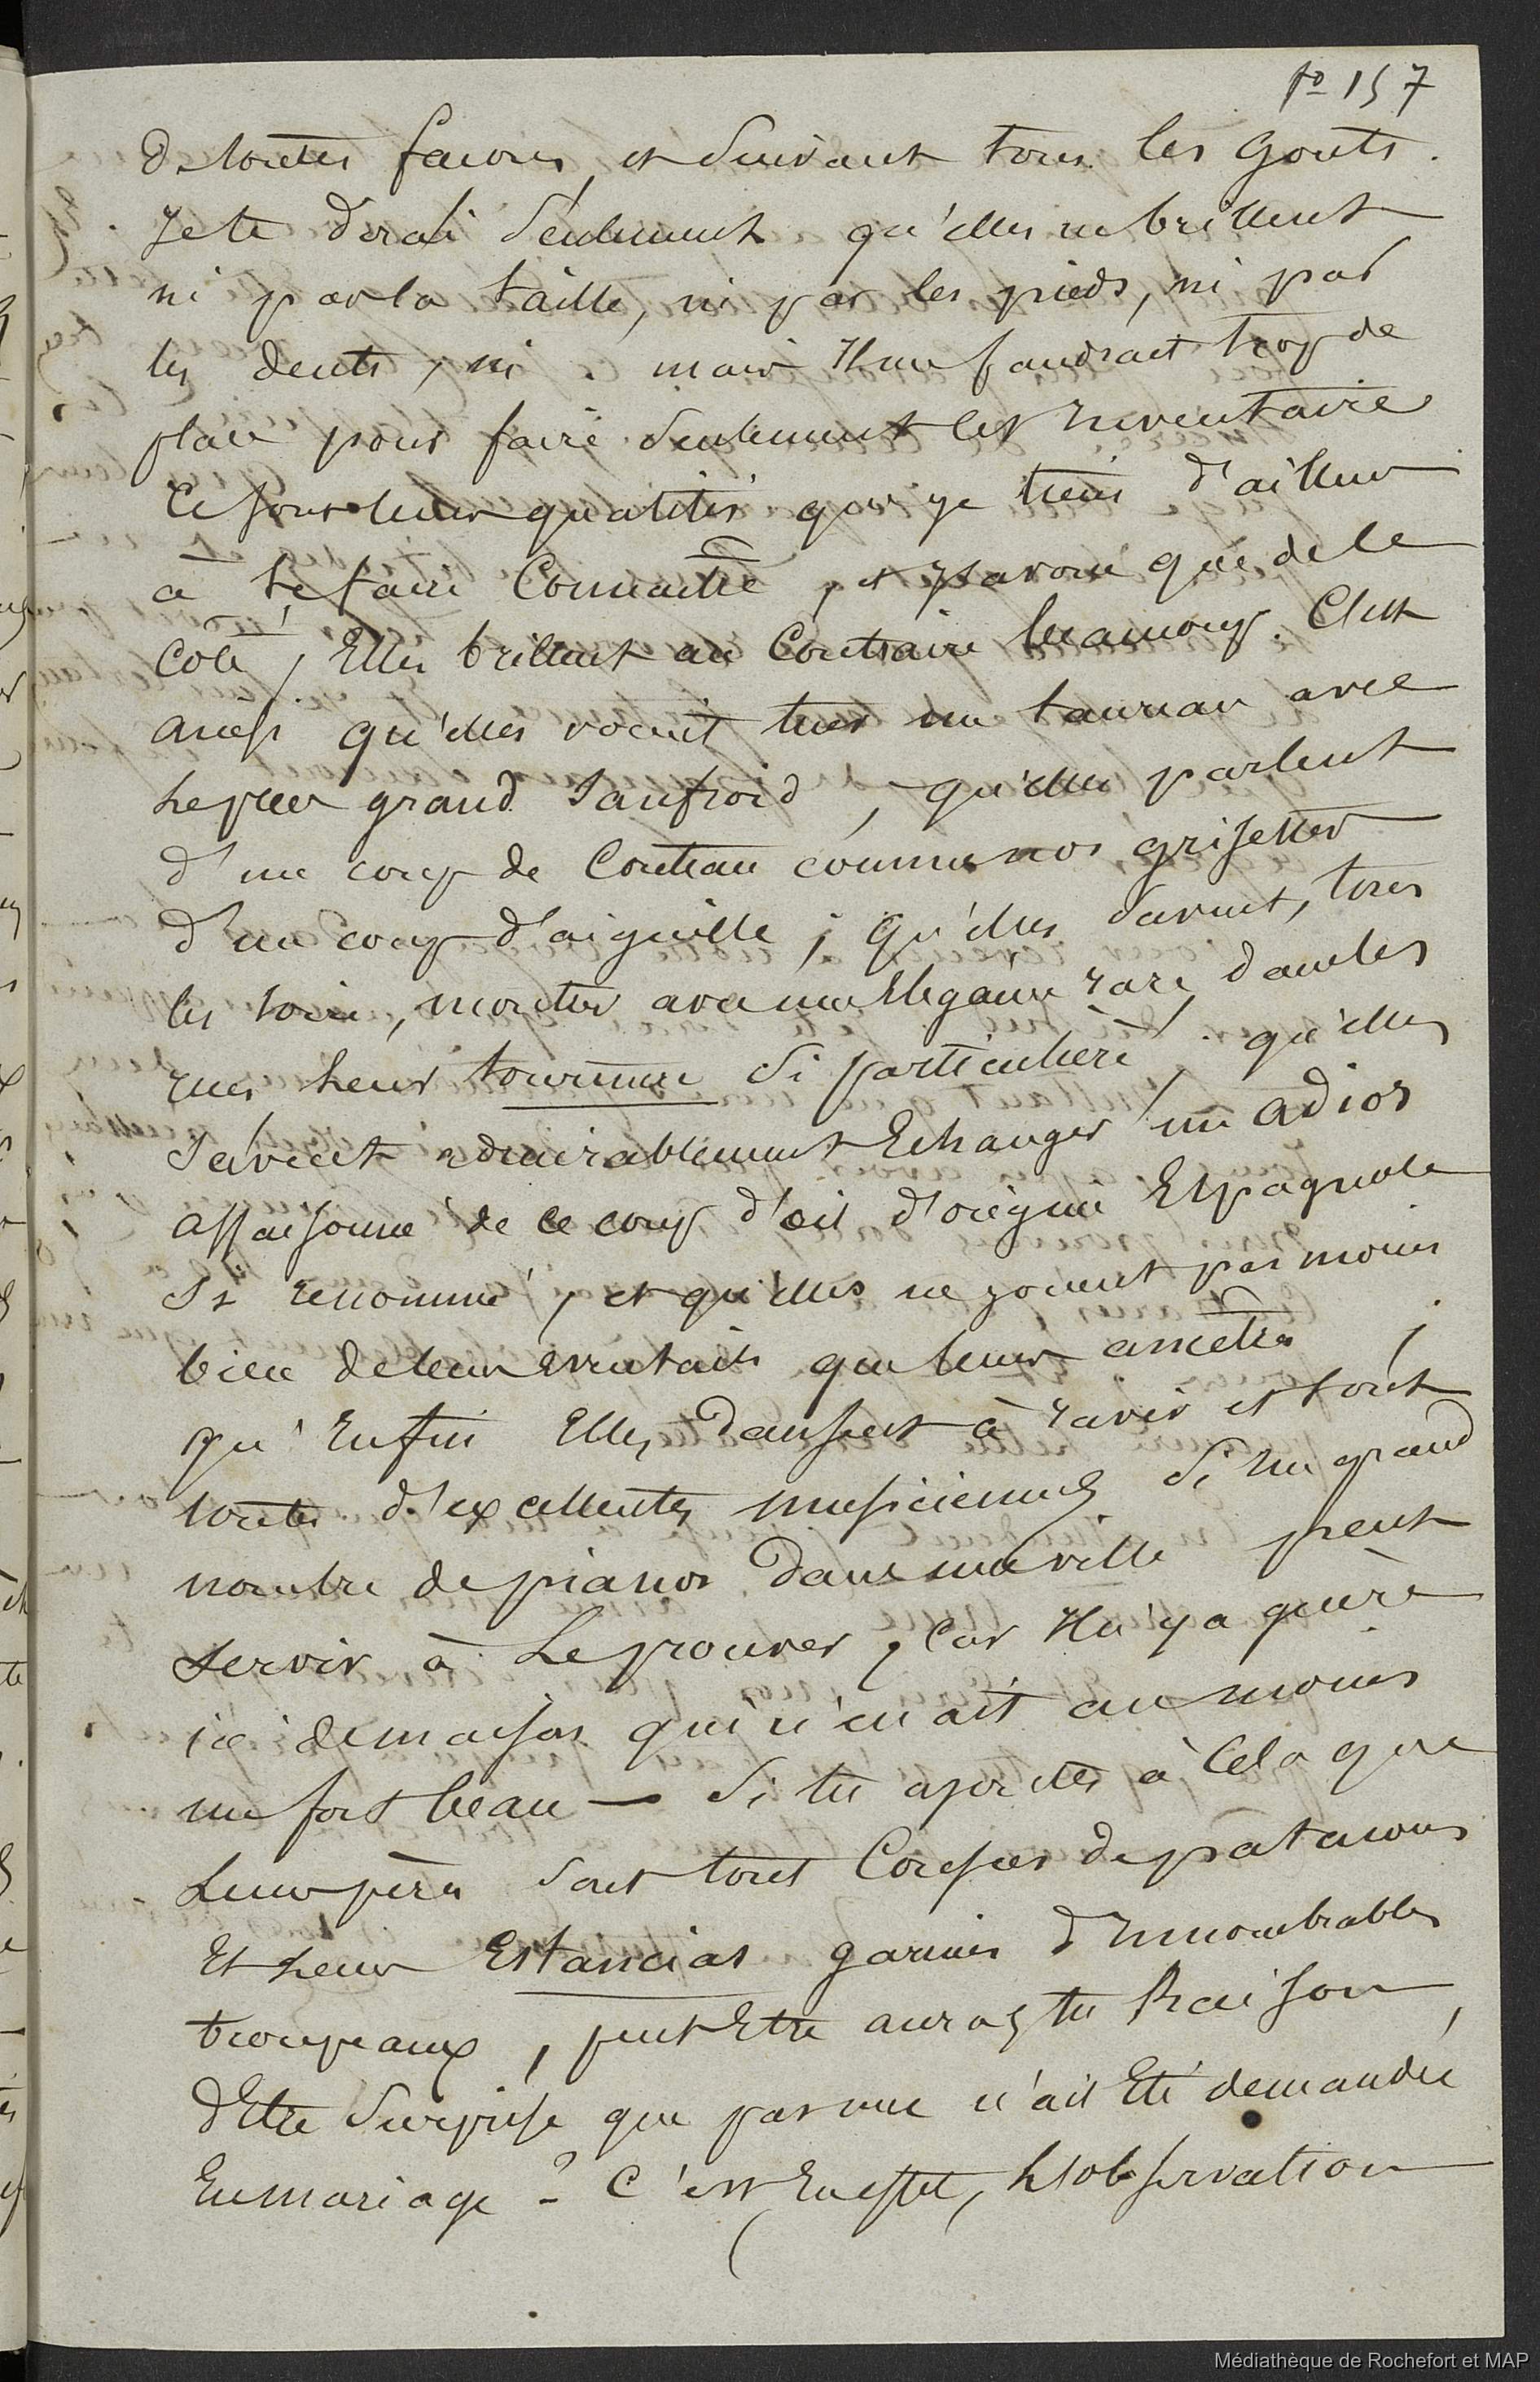 fo 157
de toutes facons et suivant tous les gouts.
Je te dirai seulement qu'elles ne brillent
ni par la taille, ni par les pieds, ni par
les dents, ni . mais Il me faudrait trop de
place pour faire seulement cet Inventaire
Ce sont leurs qualités que je tiens d'ailleurs
à te faire Connaître, et j'avoue que de ce
Coté, Elles brillent au Contraire beaucoup. C'est
ainsi qu'elles voient tuer un taureau avec
le plus grand sanfroid, qu'elles parlent
d'un coup de Couteau comme nos grisettes
d'un coup d'aiguille ; qu'elles savent, tous
les soirs, montrer avec une Elégance rare, dans les
rues leur tournure si particulière, qu'elles
savent admirablement Echanger un adios
assaisonné de ce coup d'œil d'origine Espagnole
si renommé, et qu'elles ne jouent pas moins
bien de leurs éventails que leurs ancêtres ;
qu'Enfin Elles dansent à ravir et sont
toutes d'excellentes musiciennes si un grand
nombre de pianos dans une ville peut
servir à le prouver, Car Il n'y a guère
ici de maison qui n'en ait au moins
un fort beau — Si tu ajoutes à Cela que
Leurs pères sont tous Cousus de patacons
Et Leurs Estancias garnies d'Innombrables
troupeaux, peut Etre auras tu Raison,
d'Etre surprise que pas une n'ait Eté demandée
En mariage - ? C'est En effet, L'observation
Médiathèque de Rochefort et MAP